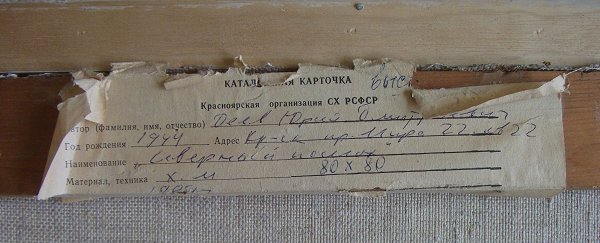 КАТАЛОЖНАЯ КАРТОЧКА
Красноярская организация СХ РСФСР
Автор (фамилия, имя, отчество) Деев Юрий
Год рождения 1944 Адрес Кр-ск пр. Мира 22 кв 22
Наименование Северный поселок
Материал, техника х. м 80 х 80